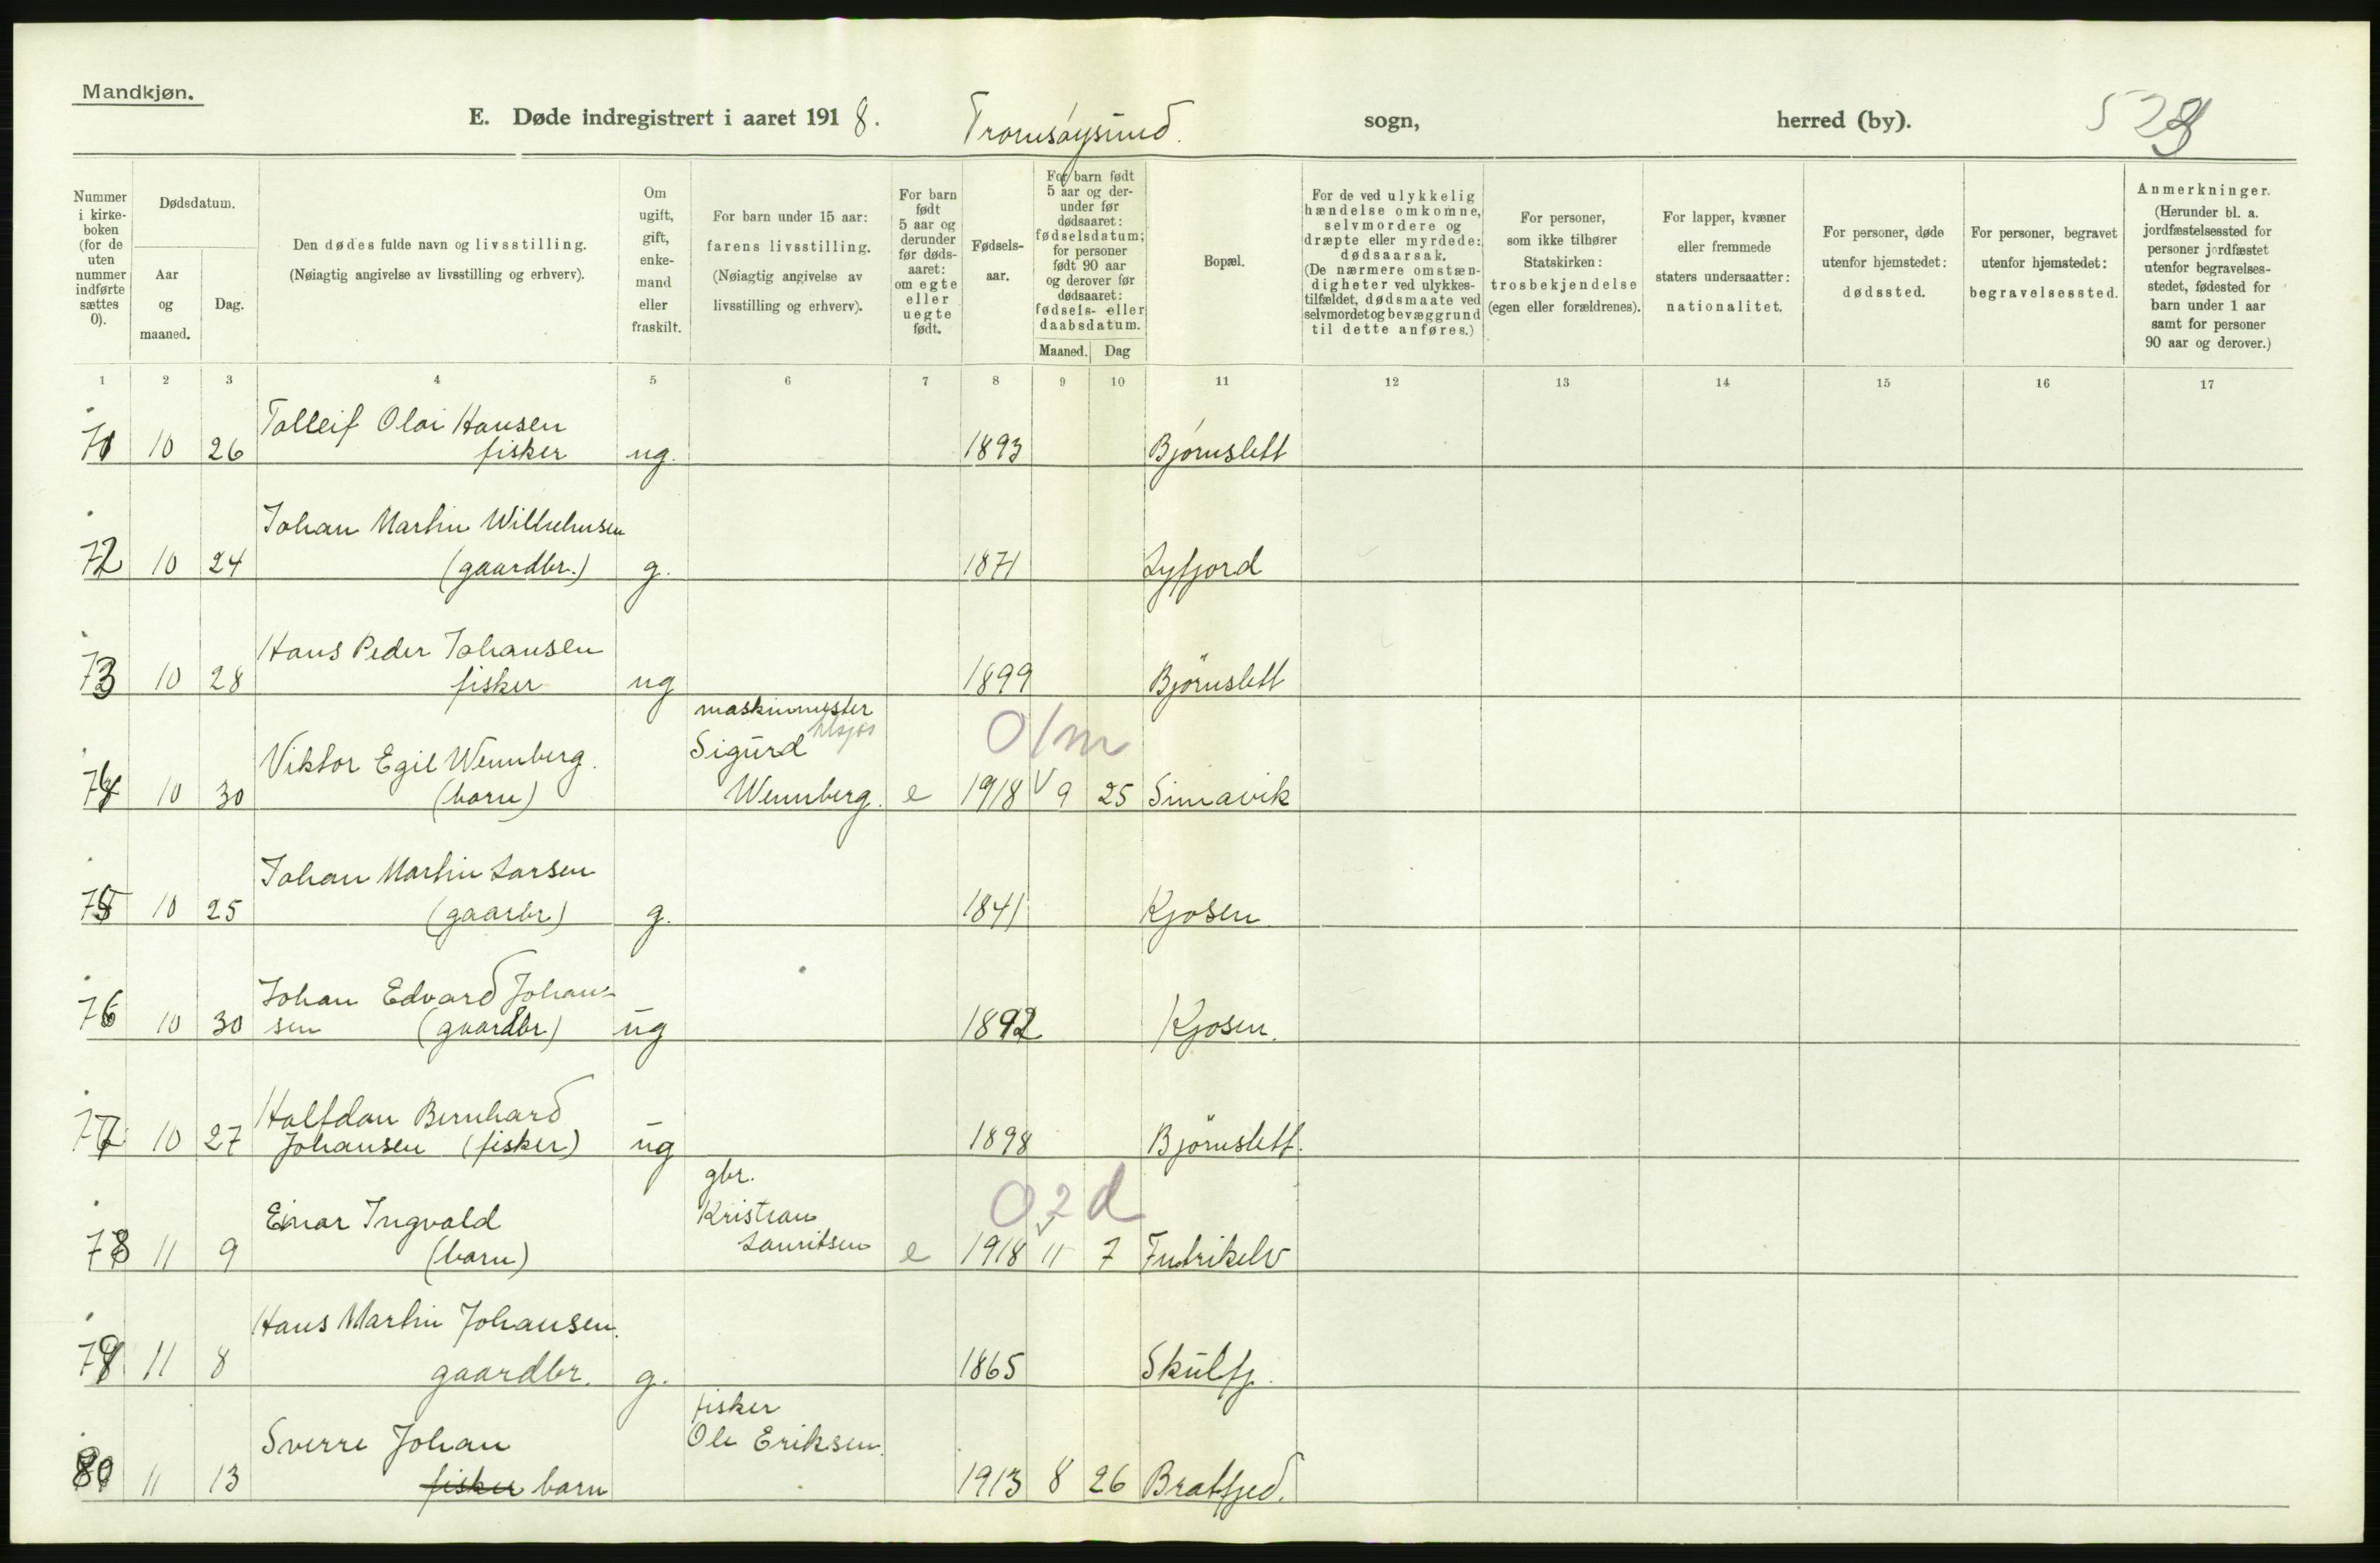 Mandkjøn.
E. Døde indregistrert i aaret 1918. Tromsøysund. sogn, herred (by).
Nummer i kirkeboken (for de uten nummer indførte sættes 0).
Dødsdatum.
Aar og maaned.
Dag.
Den dødes fulde navn og livsstilling.
(Nøiagtig angivelse av livsstilling og erhverv).
Om ugift, gift, enkemand eller fraskilt.
For barn under 15 aar: farens livsstilling.
(Nøiagtig angivelse av livsstilling og erhverv).
For barn født 5 aar og derunder før dødsaaret: om egte eller uegte født.
Fødselsaar.
For barn født 5 aar og derunder før dødsaaret: fødselsdatum; for personer født 90 aar og derover før dødsaaret: fødsels- eller daabsdatum.
Maaned. Dag
Bopæl.
For de ved ulykkelig hændelse omkomne, selvmordere og dræpte eller myrdede: dødsaarsak.
(De nærmere omstændigheter ved ulykkestilfældet, dødsmaate ved selvmordet og bevæggrund til dette anføres.)
For personer, som ikke tilhører Statskirken: trosbekjendelse (egen eller forældrenes).
For lapper, kvæner eller fremmede staters undersaatter: nationalitet.
For personer, døde utenfor hjemstedet: dødssted.
For personer, begravet utenfor hjemstedet: begravelsessted.
Anmerkninger.
(Herunder bl. a. jordfæstelsessted for personer jordfæstet utenfor begravelsesstedet, fødested for barn under 1 aar samt for personer 90 aar og derover.)
1 2 3 4 5 6 7 8 9 10 11 12 13 14 15 16 17
Tolleif Olai Hansen
71 10 26 fisker ug. 1893 Bjørnslett
Johan Martin Wilhelmsen
72 10 24 (gaardbr.) g. 1871 Lyfjord
Hans Peder Johansen
73 10 28 fisker ug 1899 Bjørnslett
maskinmester
Viktor Egil Wennberg. Sigurd 0/m
74 10 30 (barn) Wennberg. e 1918 9 25 Simavik
Johan Martin Larsen
75 10 25 (gaarbr) g. 1841 Kjosen.
Johan Edvard Johan-
76 10 30 sen (gaardbr) ug 1892 Kjosen.
Halfdan Bernhard
77 10 27 Johansen (fisker) ug 1898 Bjørnslett.
gbr.
Einar Ingvald Kristian 0 2 d
78 11 9 (barn) Lauritsen e 1918 11 7 Futrikelv
Hans Martin Johansen.
79 11 8 gaardbr. g. 1865 Skulfj.
fisker
Sverre Johan Ole Eriksen.
80 11 13 fisker barn 1913 8 26 Bratfjed.